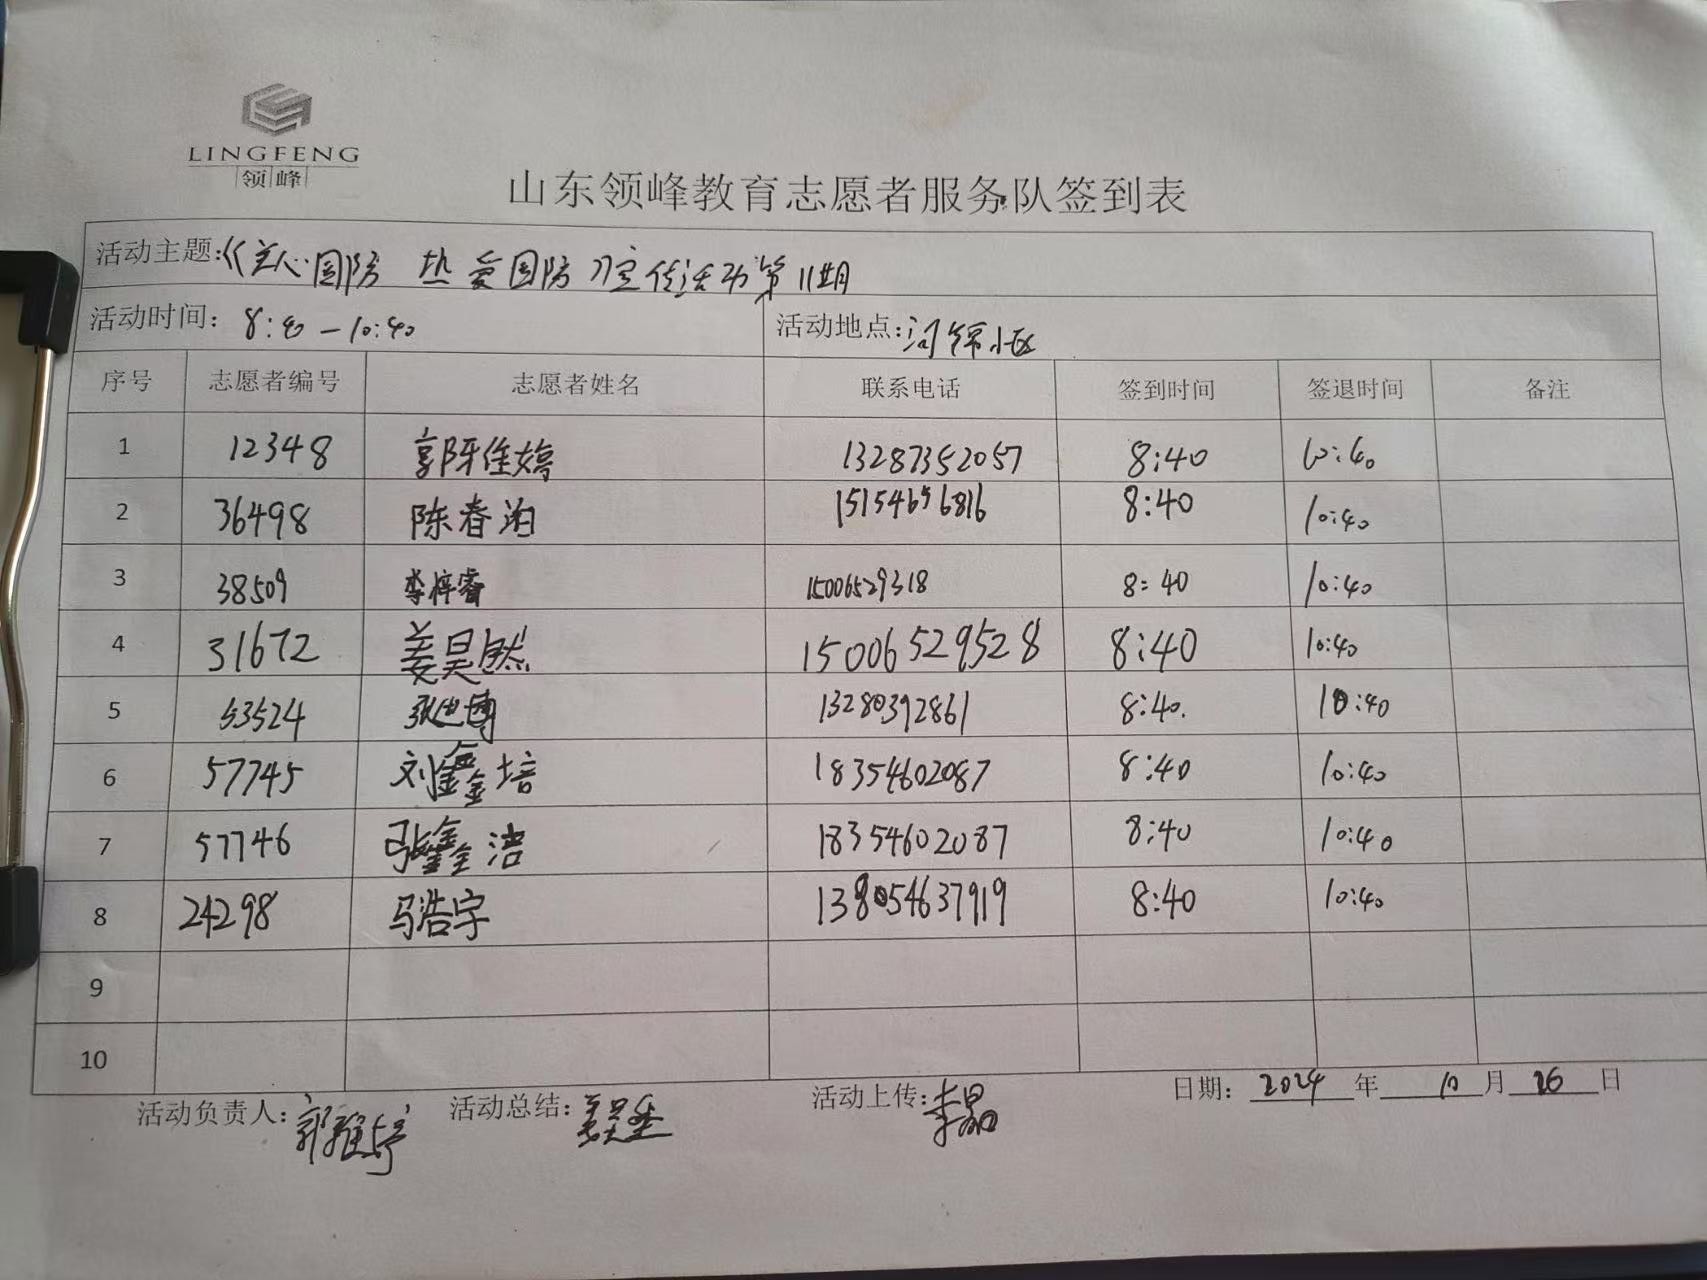 LINGFENG
领峰
山东领峰教育志愿者服务队签到表
活动主题:《关心国防 热爱国防》宣传活动第11期
活动时间: 8:40-10:40 活动地点: 小区
序号 志愿者编号 志愿者姓名 联系电话 签到时间 签退时间 备注
1 12348 郭雅婷 13287352057 8:40 10:40
2 36498 陈春泊 15154656816 8:40 10:40
3 38509 李梓睿 15006529318 8:40 10:40
4 31672 姜昊然 15006529528 8:40 10:40
5 53524 张迪博 13280392861 8:40. 10:40
6 57745 刘鑫培 18354602087 8:40 10:40
7 57746 张鑫洁 18354602087 8:40 10:40
8 24298 马浩宇 138054637919 8:40 10:40
9
10
活动负责人:郭雅婷 活动总结: 活动上传: 日期: 2024 年 10 月 26 日